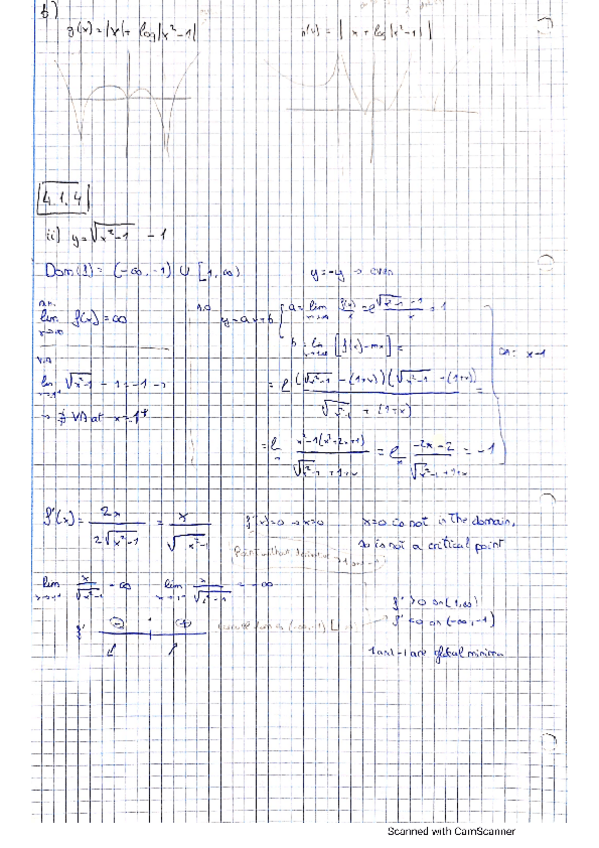 b)
g(x) = |x| + log|x²-1|
h(x) = | x + log|x²-1| |
4.1.4
ii) y = √x²-1 - 1
Dom(f) = (-∞, -1) ∪ [1, ∞)
y = -y → even
lim f(x) = ∞
y = ax+b
a = lim f(x)/x = 1
b = lim [f(x) - mx] =
OA: x-1
V.A
lim √x²-1 - 1 = -1 →
→ ∄ VA at x=1⁺
= (√x²-1 - (1+x))(√x²-1 - (1+x)) / √x²-1 + (1+x) =
= x²-1(x²+2x+1) / √x²-1 + 1+x = -2x-2 / √x²-1 + 1+x = -1
f'(x) = 2x / 2√x²-1 = x / √x²-1
f'(x)=0 → x=0
x=0 is not in the domain,
so is not a critical point
lim x→-1⁻ x/√x²-1 = -∞
lim x→1⁺ x/√x²-1 = -∞
f' ⊖ ⊕
f' >0 on (1,∞)
f' <0 on (-∞, -1)
1 and -1 are global minima
Scanned with CamScanner